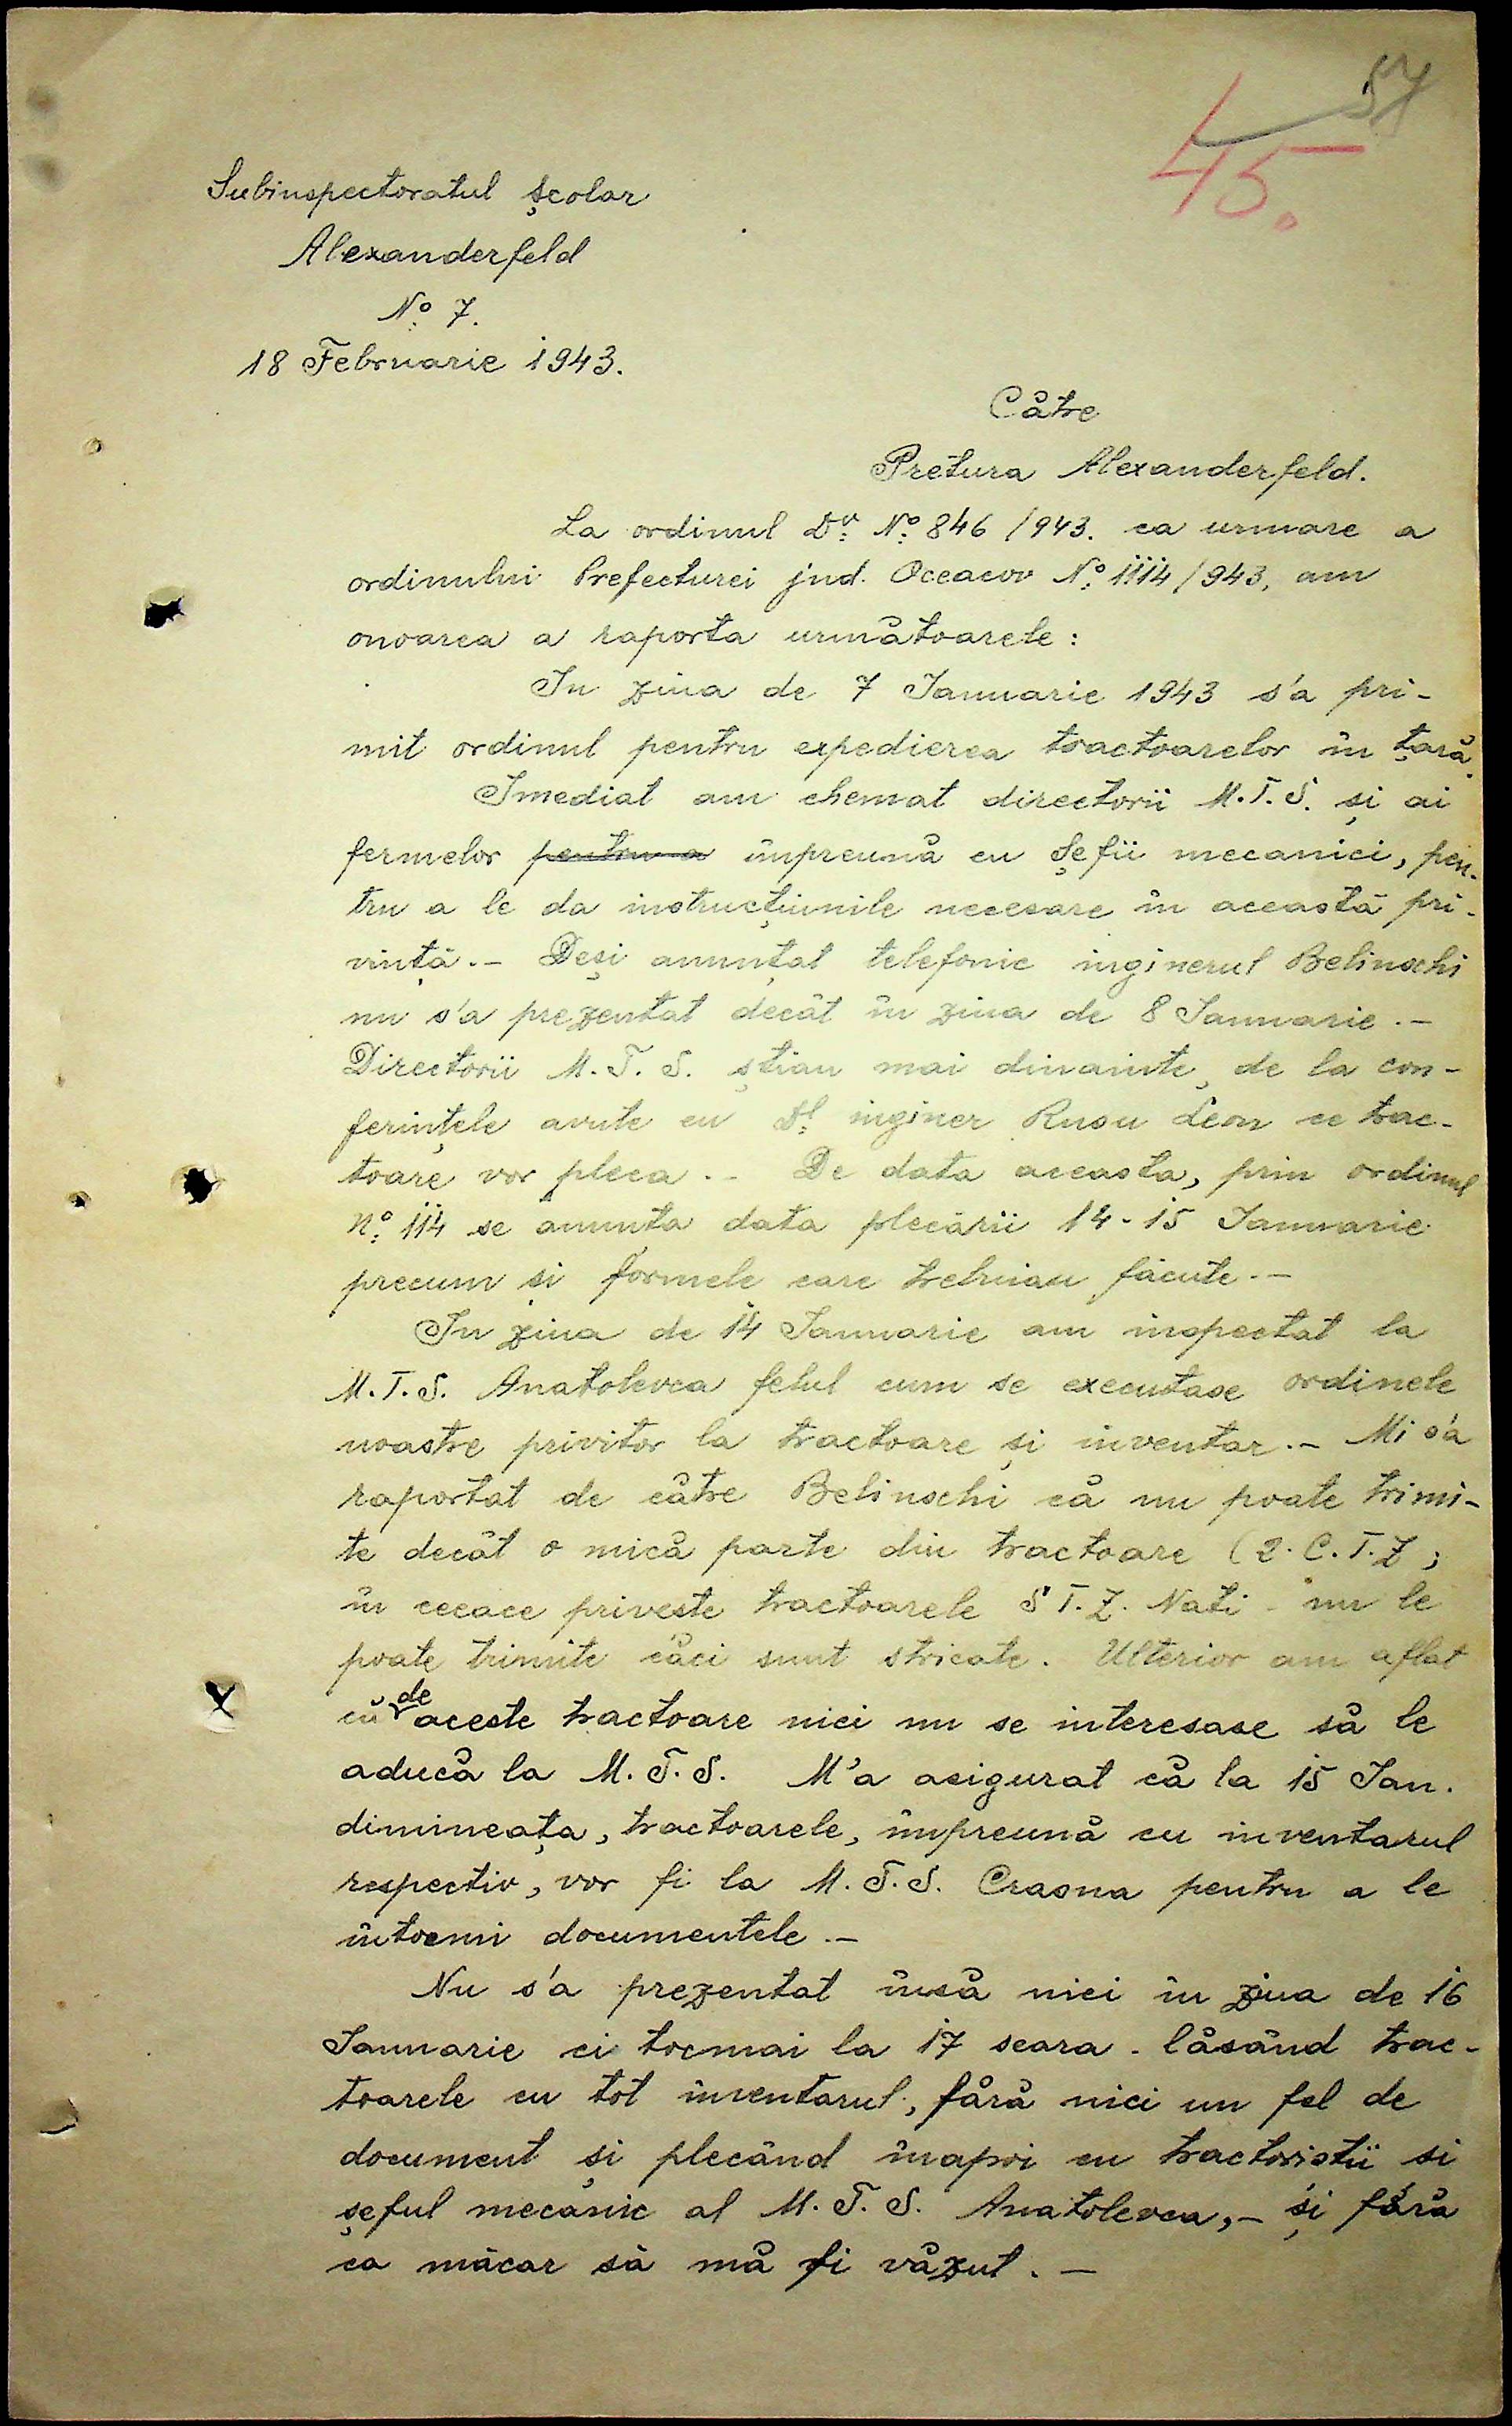 57
45.
Subinspectoratul școlar
Alexanderfeld
No 7.
18 Februarie 1943.
Către
Pretura Alexanderfeld.
La ordinul Dv. No 846/943. ca urmare a
ordinului Prefecturei jud. Oceacov No 1114/943, am
onoarea a raporta următoarele:
In ziua de 7 Ianuarie 1943 s'a pri-
mit ordinul pentru expedierea tractoarelor în țară.
Imediat am chemat directorii M.T.S. și ai
fermelor pentru a împreună cu șefii mecanici, pen-
tru a le da instrucțiunile necesare în această pri-
vință.- Deși anunțat telefonic inginerul Belinschi
nu s'a prezentat decât în ziua de 8 Ianuarie.-
Directorii M.T.S. știau mai dinainte, de la con-
ferințele avute cu Dl. inginer Rusu Leon ce trac-
toare vor pleca.- De data aceasta, prin ordinul
No. 114 se anunța data plecării 14-15 Ianuarie
precum și formele care trebuiau făcute.-
In ziua de 14 Ianuarie am inspectat la
M.T.S. Anatolevca felul cum se executase ordinele
noastre privitor la tractoare și inventar.- Mi s'a
raportat de către Belinschi că nu poate trimi-
te decât o mică parte din tractoare (2. C.T.Z;
în ceeace privește tractoarele S T.Z. Nati - nu le
poate trimite căci sunt stricate. Ulterior am aflat
că de aceste tractoare nici nu se interesase să le
aducă la M.T.S. M'a asigurat că la 15 Ian.
dimineața, tractoarele, împreună cu inventarul
respectiv, vor fi la M.T.S. Crasna pentru a le
întocmi documentele.-
Nu s'a prezentat însă nici în ziua de 16
Ianuarie ci tocmai la 17 seara - lăsând trac-
toarele cu tot inventarul, fără nici un fel de
document și plecând înapoi cu tractoristii si
șeful mecanic al M.T.S. Anatolevca,- și fără
ca măcar să mă fi văzut.-